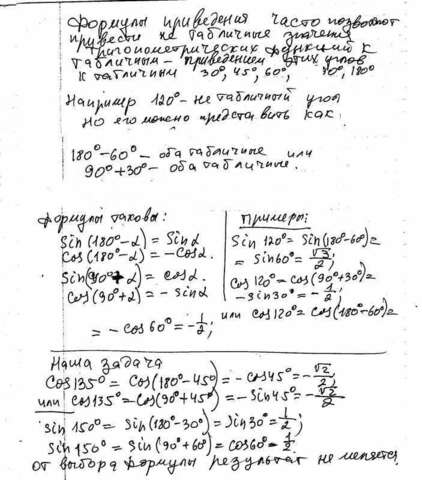 Формулы приведения часто позволяют
привести не табличные значения
тригонометрических функций к
табличным – приведением этих углов
к табличным 30°, 45°, 60°, 90°, 180°
Например 120° - не табличный угол
но его можно представить как:
180° - 60° – оба табличные или
90° + 30° – оба табличные.
Формулы таковы:
Sin(180° - α) = Sin α
Cos(180° - α) = - Cos α.
Sin(90° + α) = Cos α.
Cos(90° + α) = - Sin α
Примеры:
Sin 120° = Sin(180° - 60°) =
= Sin 60° = √3/2;
Cos 120° = Cos(90° + 30°) =
- Sin 30° = - 1/2;
или Cos 120° = Cos(180° - 60°) =
= - Cos 60° = - 1/2;
Наша задача
Cos 135° = Cos(180° - 45°) = - Cos 45° = - √2/2;
или Cos 135° = Cos(90° + 45°) = - Sin 45° = - √2/2
Sin 150° = Sin(180° - 30°) = Sin 30° = 1/2;
Sin 150° = Sin(90° + 60°) = Cos 60° = 1/2
От выбора формулы результат не меняется.